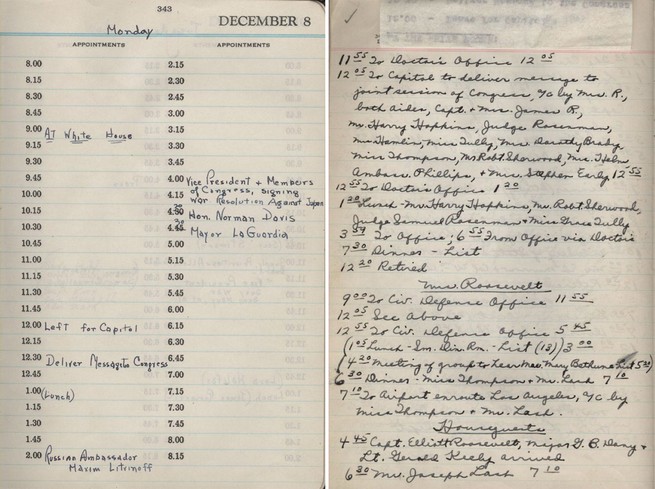 343
DECEMBER 8
Monday
APPOINTMENTS
8.00
8.15
8.30
8.45
9.00 At White House
9.15
9.30
9.45
10.00
10.15
10.30
10.45
11.00
11.15
11.30
11.45
12.00 Left for Capitol
12.15
12.30 Deliver Message to Congress
12.45
1.00 (Lunch)
1.15
1.30
1.45
2.00 Russian Ambassador
Maxim Litvinoff
APPOINTMENTS
2.15
2.30
2.45
3.00
3.15
3.30
3.45
4.00 Vice President + Members
of Congress, signing
4.15 War Resolution Against Japan
4.30 Hon. Norman Davis
4.45 Mayor LaGuardia
5.00
5.15
5.30
5.45
6.00
6.15
6.30
6.45
7.00
7.15
7.30
7.45
8.00
8.15
11 55 To Doctor's Office 12 05
12 05 To Capitol to deliver message to
joint session of Congress, a/c by Mrs. R.,
both aides, Capt. + Mrs. James R.,
Mr. Harry Hopkins, Judge Rosenman,
Miss Tully, Mrs. Dorothy Brady,
Miss Thompson, Mr. Robt. Sherwood, Mrs. Helm,
Ambass. Phillips, + Mrs. Stephen Early 12 55
12 55 To Doctor's Office 1 20
1 20 Lunch - Mr. Harry Hopkins, Mr. Robt. Sherwood,
Judge Samuel Rosenman + Miss Grace Tully
To Office; 6 55 From Office via Doctor's
7 30 Dinner - List
12 20 Retired
Mrs. Roosevelt
9 00 To Civ. Defense Office 11 55
12 05 See above
12 55 To Civ. Defense Office 5 45
(1 05 Lunch - Sm. Din. Rm. - List (13)) 3 00
(4 20 Meeting of group to hear Mrs. Mary Bethune List
6 30 Dinner - Miss Thompson + Mr. Lash 7 10
7 10 To Airport enroute Los Angeles, a/c by
Miss Thompson + Mr. Lash.
Houseguests
4 45 Capt. Elliott Roosevelt, Major G. B. Dany +
Lt. Gerald arrived
6 30 Mr. Joseph Lash 7 10